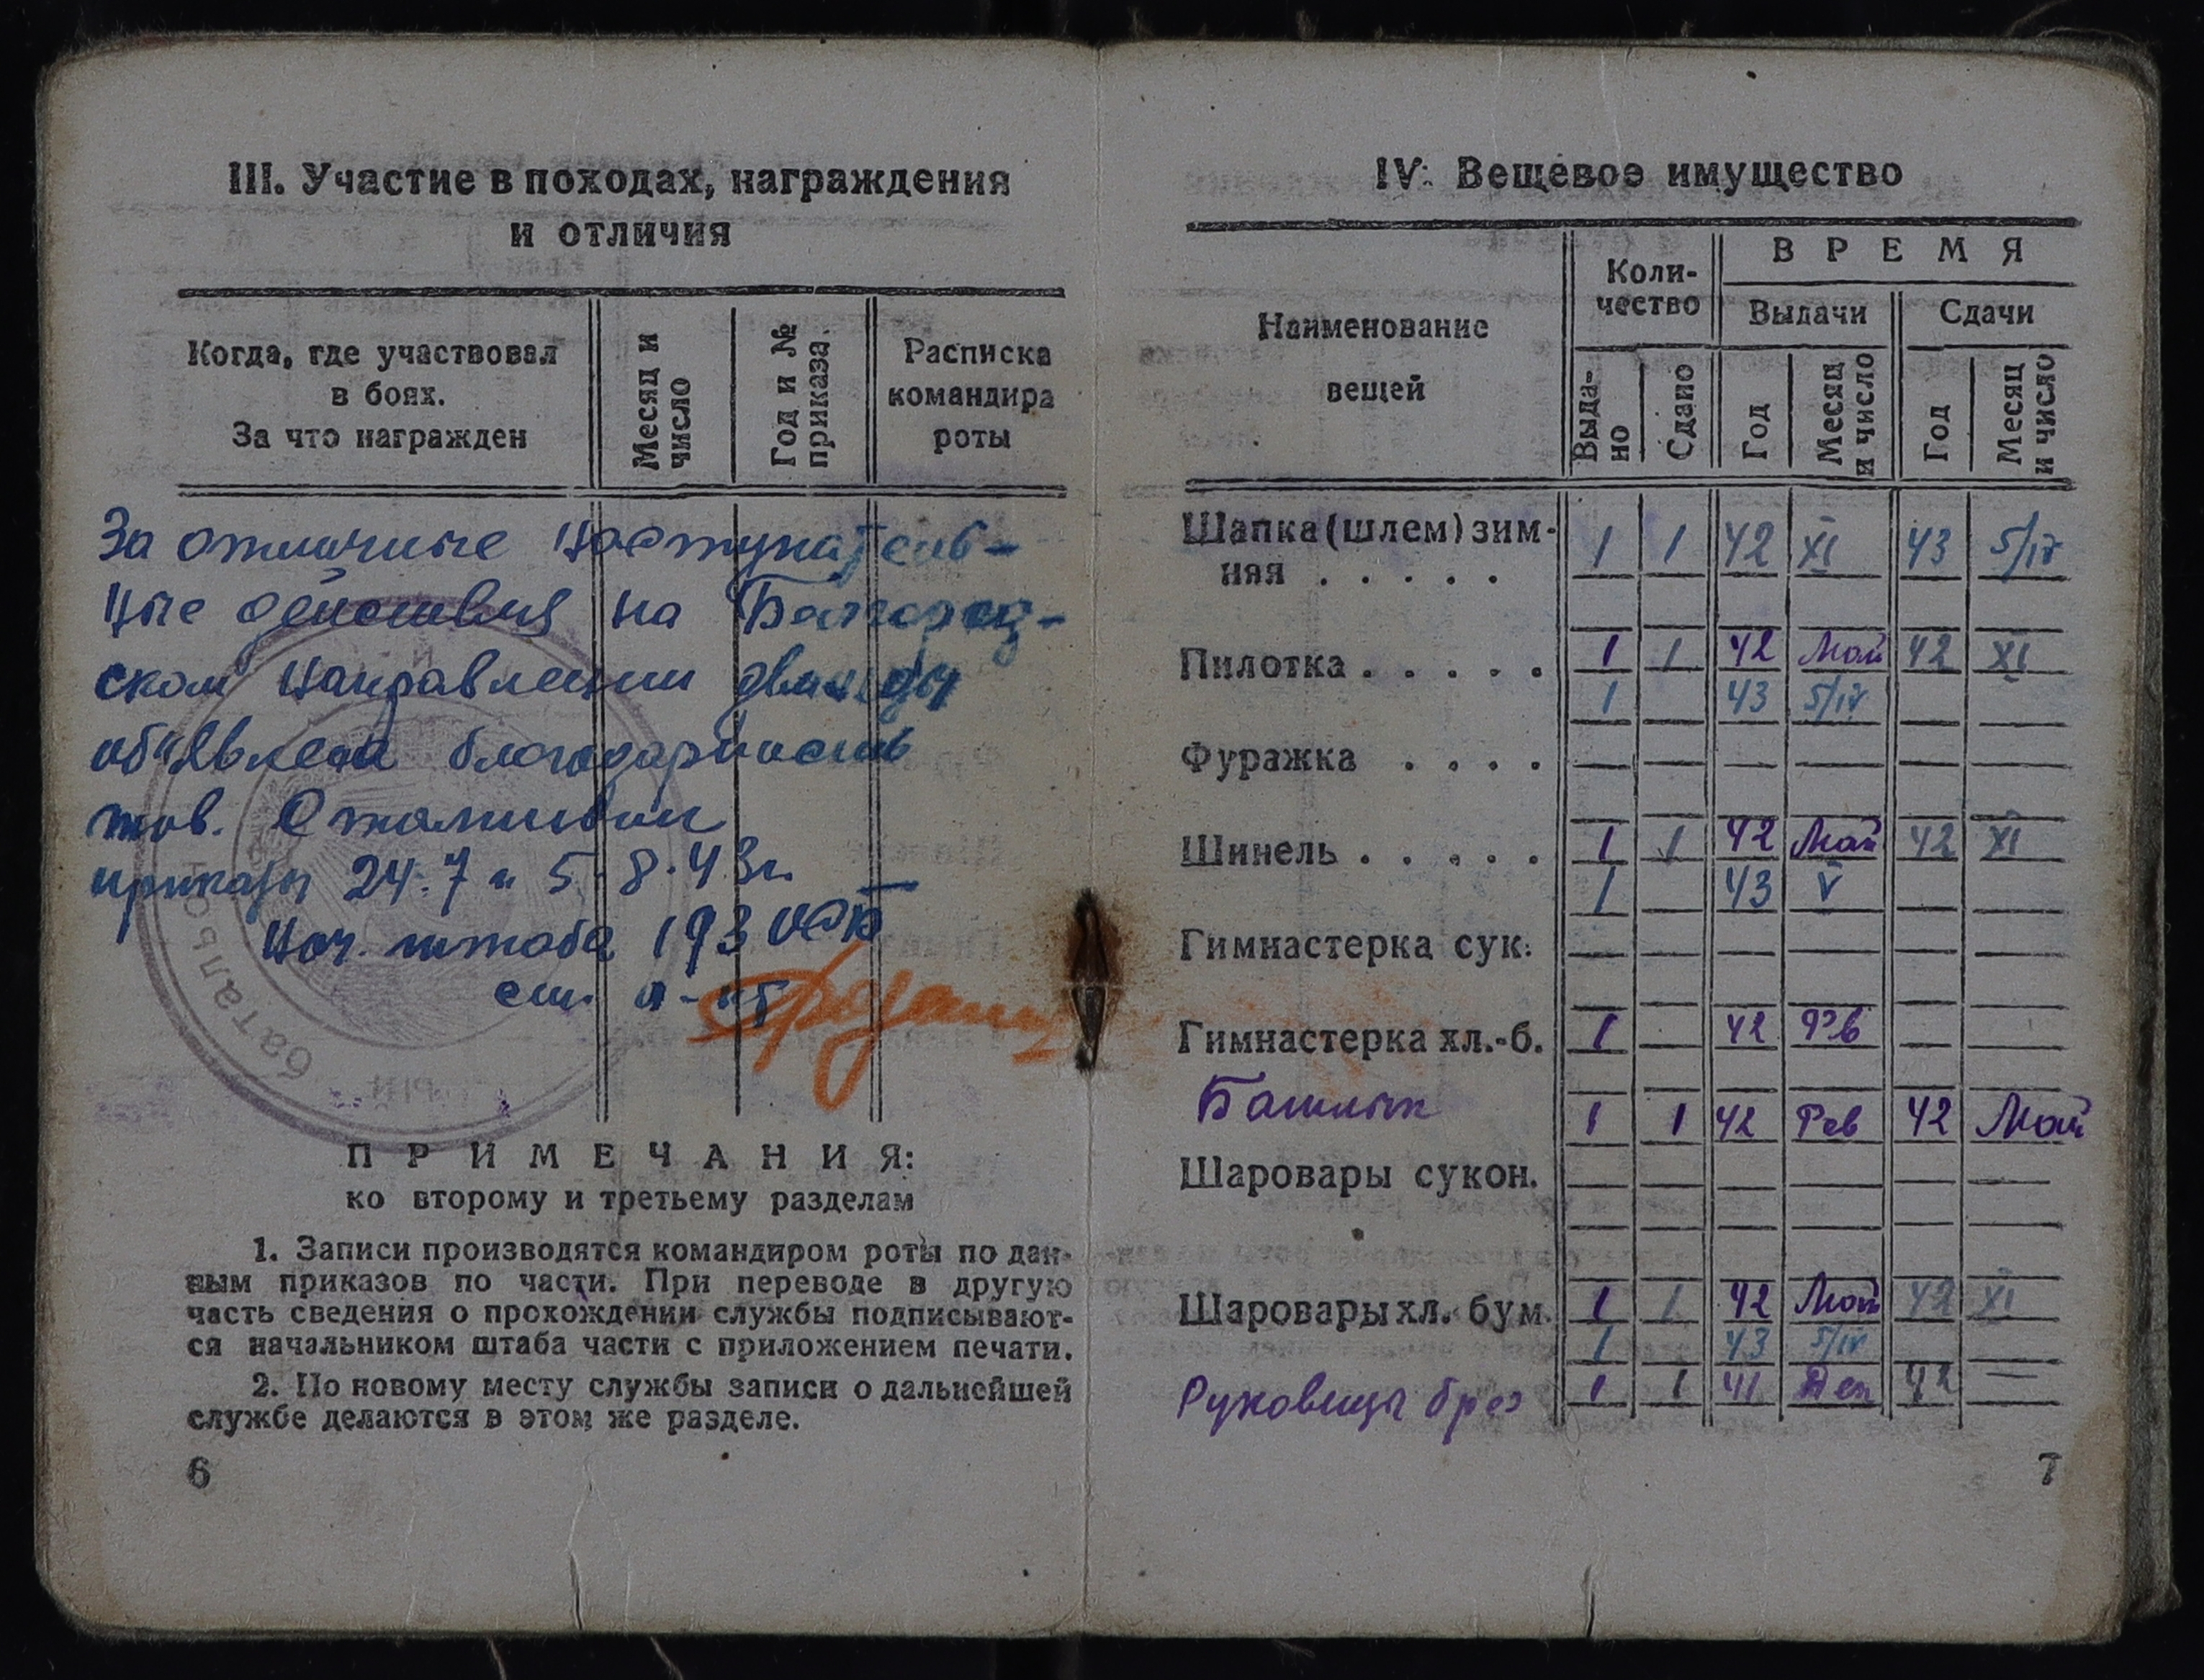 III. Участие в походах, награждения
и отличия
Когда, где участвовал
в боях.
За что награжден
Месяц и
число
Год и №
приказа
Расписка
командира
роты
За отличные наступатель-
ные действия на Белгород-
ском направлении дважды
объявлена благодарность
тов. Сталиным
приказы 24.7 и 5.8.43г.
Нач. штаба 193
ст. л-нт
батальон
П Р И М Е Ч А Н И Я:
ко второму и третьему разделам
1. Записи производятся командиром роты по дан-
ным приказов по части. При переводе в другую
часть сведения о прохождении службы подписывают-
ся начальником штаба части с приложением печати.
2. По новому месту службы записи о дальнейшей
службе делаются в этом же разделе.
6
IV. Вещевое имущество
Наименование
вещей
Коли-
чество
В Р Е М Я
Выдачи
Сдачи
Выда-
но
Сдано
Год
Месяц
и число
Год
Месяц
и число
Шапка (шлем) зим-
няя . . . . . 1 1 42 XI 43 5/IV
Пилотка . . . . . 1 1 42 Май 42 XI
1 43 5/IV
Фуражка . . . . — — — — — —
Шинель . . . . . 1 1 42 Май 42 XI
1 43 V
Гимнастерка сук. — — — — — —
Гимнастерка хл.-б. 1 — 42 Фев — —
Башлык 1 1 42 Фев 42 Май
Шаровары сукон. — — — — — —
Шаровары хл. бум. 1 1 42 Май 42 XI
1 43 5/IV
Руковицы брез 1 1 41 Дек 42 —
7